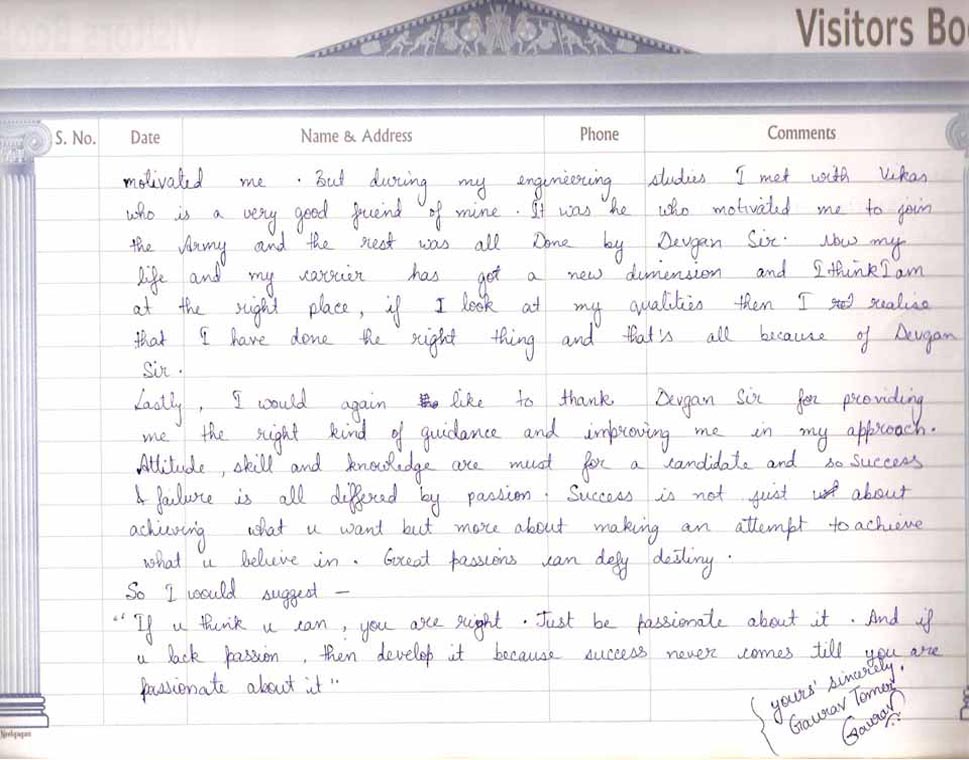 Visitors Bo
S. No. Date Name & Address Phone Comments
motivated me . But during my engineering studies I met with Vikas
who is a very good friend of mine . It was he who motivated me to join
the Army and the rest was all Done by Devgan Sir. Now my
life and my carrier has got a new dimension and I think I am
at the right place, if I look at my qualities then I realise
that I have done the right thing and that's all because of Devgan
Sir .
Lastly , I would again like to thank Devgan Sir for providing
me the right kind of guidance and improving me in my approach.
Attitude, skill and knowledge are must for a candidate and so success
& failure is all differed by passion . Success is not just about
achieving what u want but more about making an attempt to achieve
what u believe in . Great passions can defy destiny .
So I would suggest —
"If u think u can, you are right . Just be passionate about it . And if
u lack passion , then develop it because success never comes till you are
passionate about it"
yours' sincerely.
Gaurav Tomer
Gaurav
Neelgagan